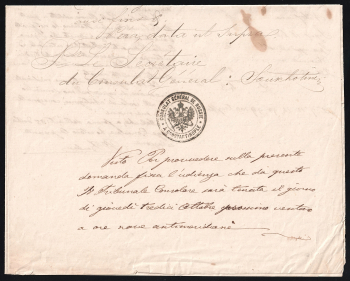 data ut Supra
Le Secrétaire
du Consulat Général:
CONSULAT GENERAL DE RUSSIE
A CONSTANTINOPLE
Visto Per provvedere sulla presente
domanda fissa l'udienza che da questo
Tribunale Consolare sarà tenuta il giorno
di giovedì tredici Ottobre prossimo venturo
a ore nove antimeridiane